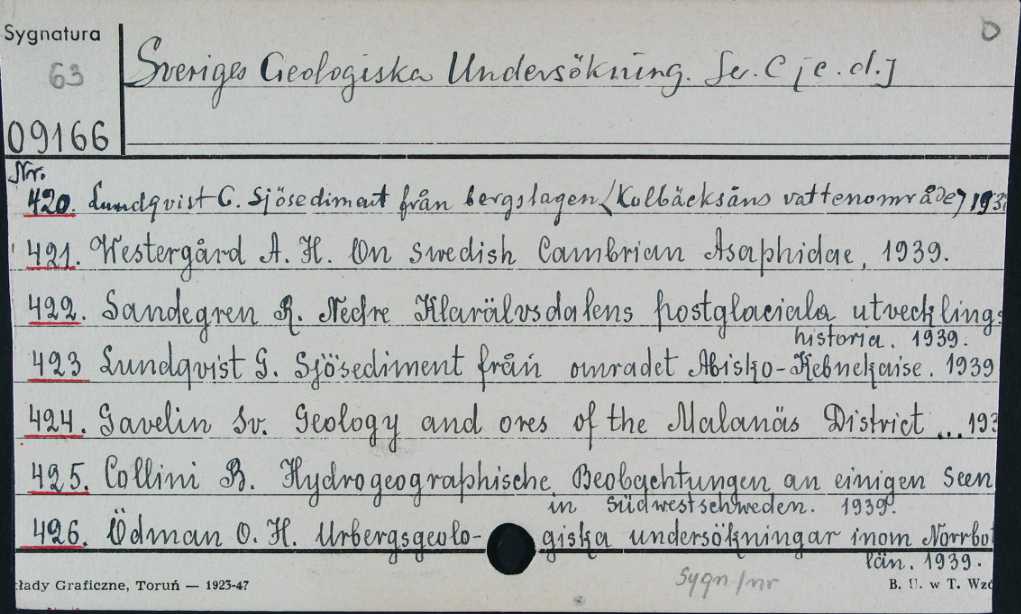 Sygnatura
63
09166
Sveriges Geologiska Undersökning. Ser. C [c.d.]
Nr.
420. Lundqvist G. Sjösediment från bergslagen (Kolbäcksåns vattenområde) 193
421. Westergård A. H. On swedish Cambrian Asaphidae, 1939.
422. Sandegren R. Nedre Klarälvsdalens postglaciala utvecklings
historia. 1939.
423 Lundqvist G. Sjösediment från omradet Abisko-Kebnekaise. 1939
424. Gavelin Sv. Geology and ores of the Malanäs District ... 193
425. Collini B. Hydrogeographische Beobachtungen an einigen Seen
in Südwestschweden. 1939.
426. Ödman O. H. Urbergsgeolo- giska undersökningar inom Norrbo
län. 1939.
łady Graficzne, Toruń — 1923-47
Sygn/nr
B. U. w T. Wzó